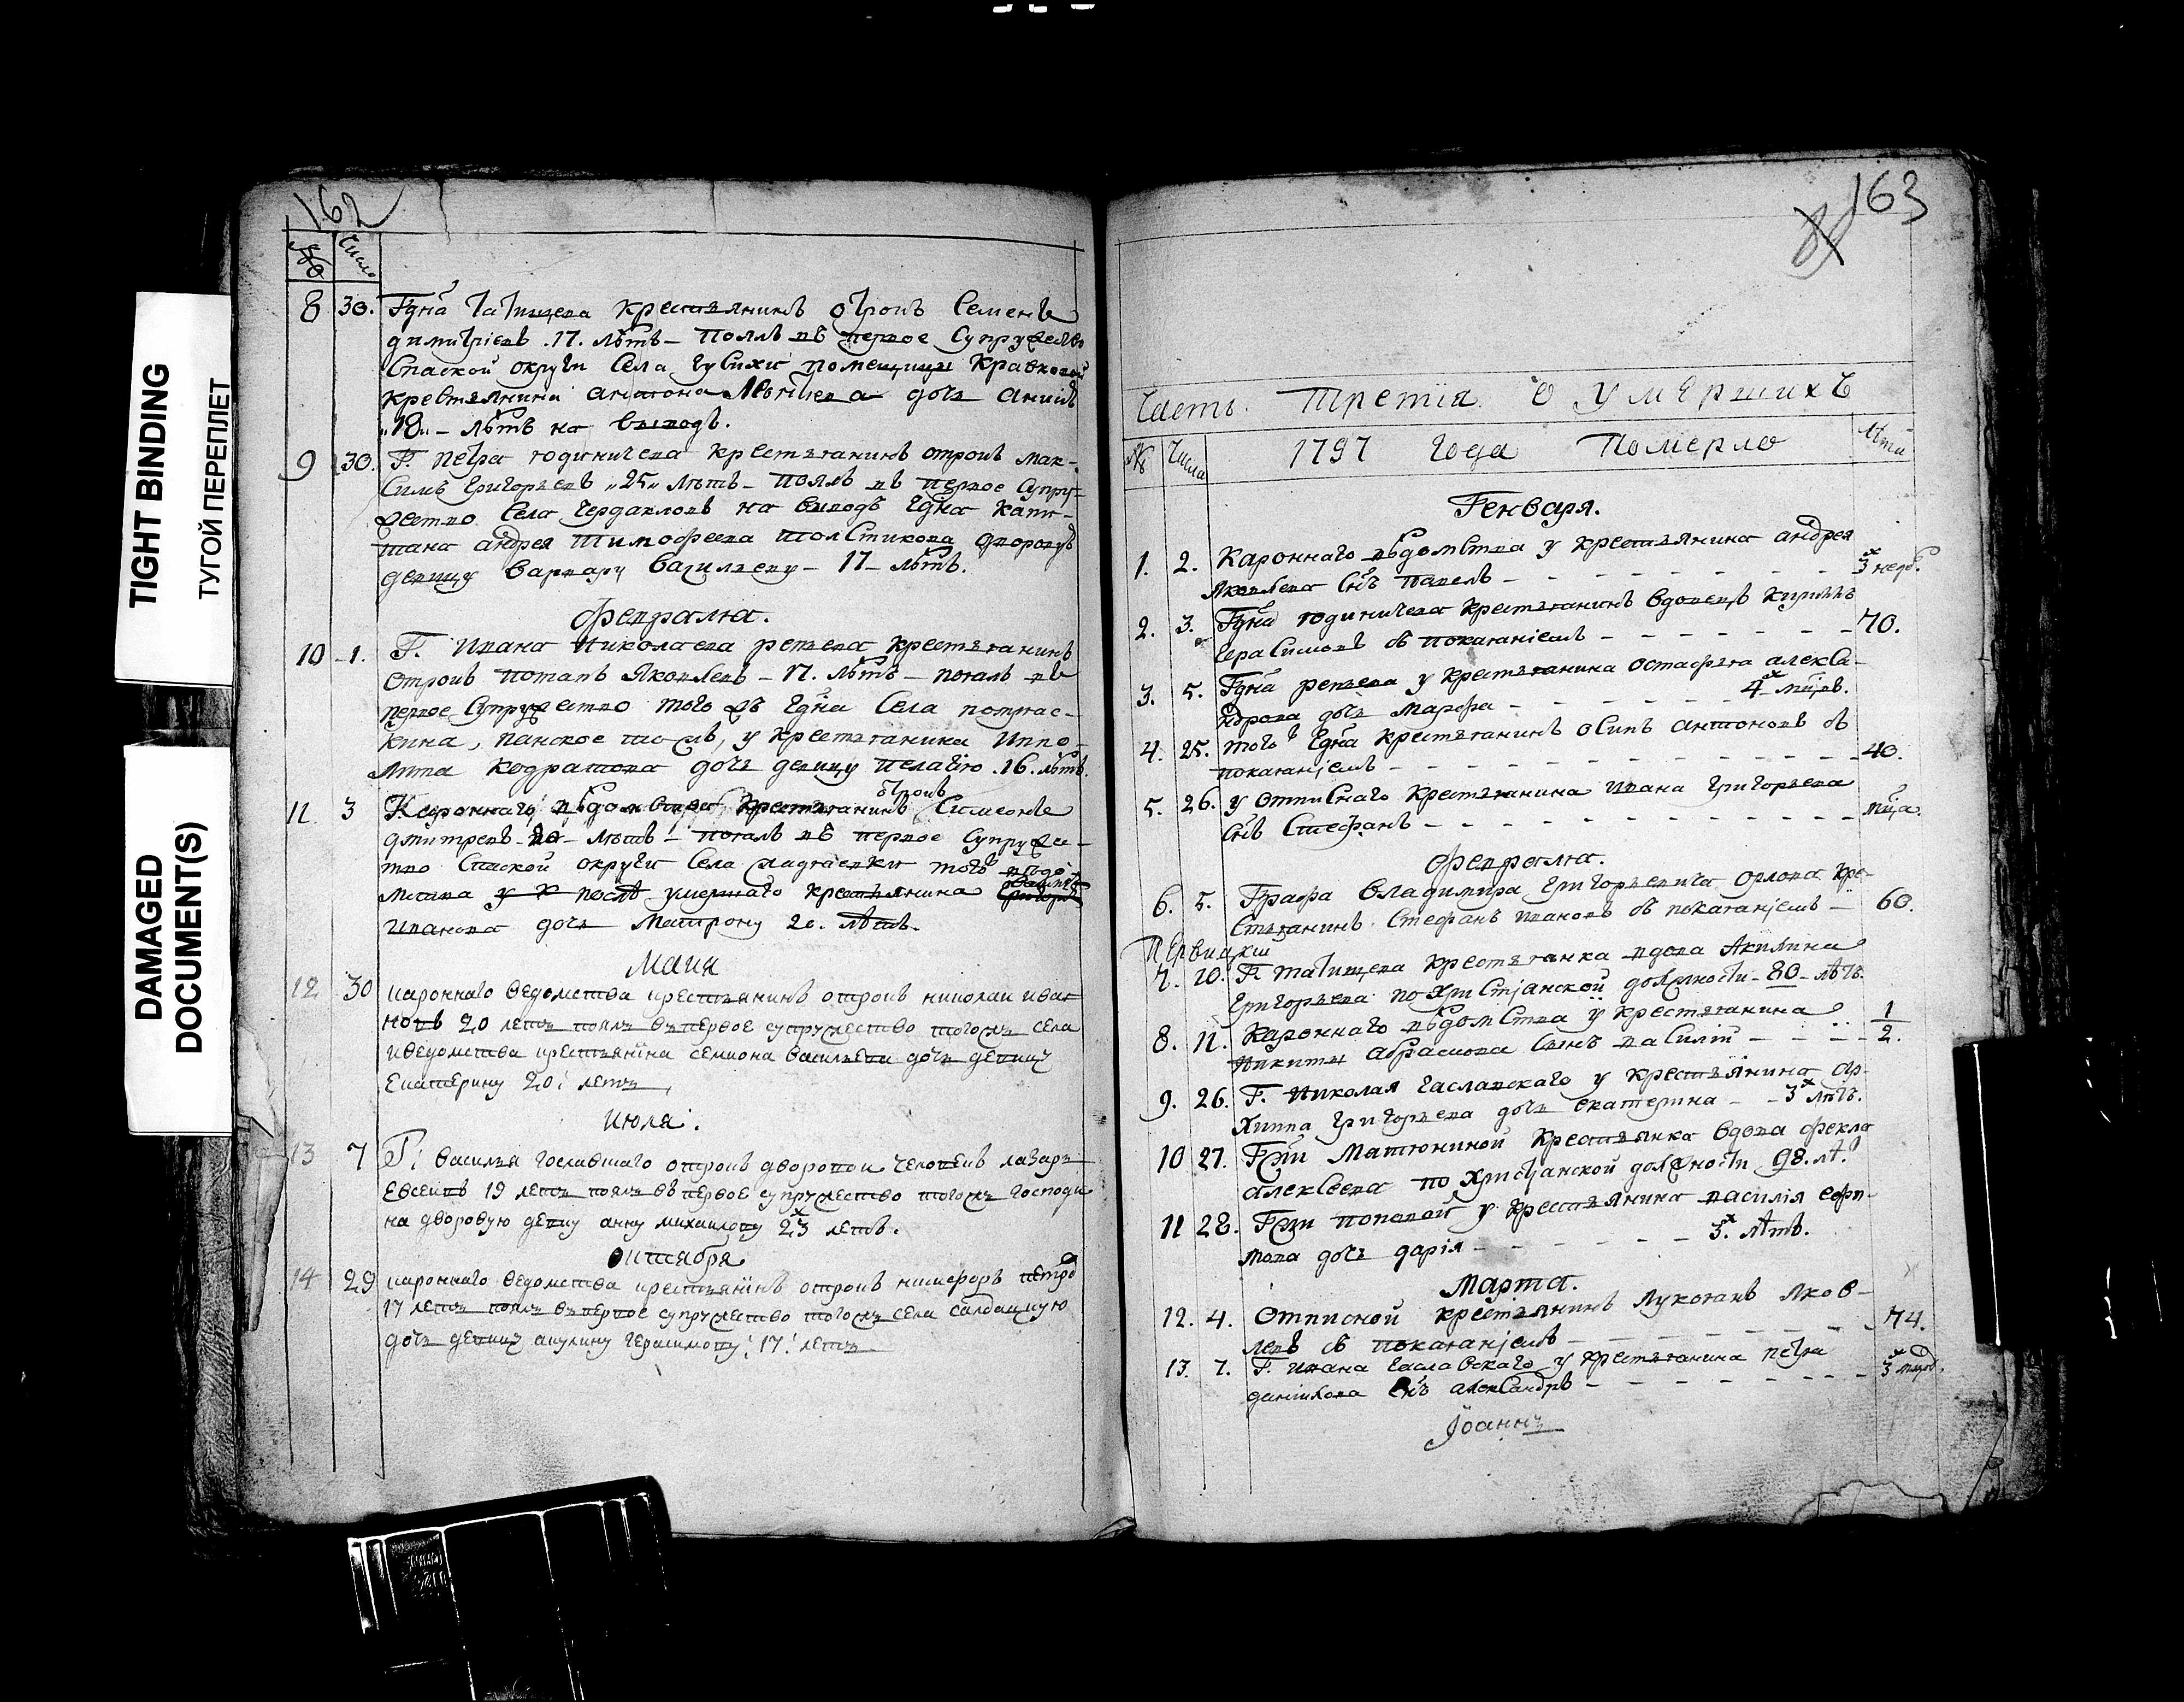 TIGHT BINDING
ТУГОЙ ПЕРЕПЛЕТ
DAMAGED
DOCUMENT(S)
162
№ Число
8 30. Гдна Татищева крестьянинъ отрокъ Семенъ
димитріевъ .17. лѣтъ – поялъ въ первое супружество
Спаской округи села помещицы
крестьянина антона дочь
„18„ – лѣтъ на выводъ.
9 30. Г. петра родиничева крестьянинъ отрокъ мак-
симъ григорьевъ „25„ лѣтъ – поялъ въ первое супру-
жество села Чердакловъ на выводъ Гдна капи-
тана андрея тимофеева толстикова дворовую
девицу варвару васильеву – 17 – лѣтъ.
февраля.
10 1. Г. ивана николаева репьева крестьянинъ
отрокъ потапъ яковлевъ – 17. лѣтъ – поялъ въ
первое супружество того жъ Гдна села
у крестьянина иппо-
лита кодратова дочь девицу пелагію .16. лѣтъ.
11 3 Кароннаго вѣдомства крестьянинъ отрокъ Симеонъ
дмитревъ – 20 – лѣтъ – поялъ въ первое супруже-
тво Спаской округи села того вѣдо
мства послѣ умершаго крестьянина
иванова дочь Матрону 20. лѣтъ.
Маиа
12 30 кароннаго ведомства крестьянинъ отрокъ николаи ива
новъ 20 летъ поялъ въ первое супружество тогожъ села
иведомства крестьянина семиона васильева дочь девицу
Екатерину 20 летъ
Июля.
13 7 Г: василья отрокъ дворовои человекъ лазарь
Евсеивъ 19 летъ поялъ въ первое супружество тогожъ господи
на дворовую девку анну михаилову 23х летъ.
Октября
14 29 кароннаго ведомства крестьянинъ отрокъ никифоръ петро
17 летъ поялъ въ первое супружество тогожъ села салдацкую
дочь девицу акулину Герасимову 17 летъ
163
Часть третія о умершихъ
№ Числа 1797 года Померло Лѣта
Генваря.
1. 2. Кароннаго вѣдомства у крестьянина андрея
яковлева снъ павелъ – 3х недѣ.
2. 3. Гдна родиничева крестьянинъ вдовецъ
герасимовъ съ покаганіемъ – 70.
3. 5. Гдна репьева у крестьянина остафья алекса-
ндрова дочь марфа – 4х мцвъ.
4. 25. того Гдна крестьянинъ осипъ антоновъ съ
покаганіемъ – 40.
5. 26. у отписнаго крестьянина ивана григорьева
снъ стефанъ – мца.
февраля.
6. 5. Графа Владимира григорьевича орлова кре-
стьянинъ стефанъ ивановъ съ покаганіемъ – 60.
7. 10. Г. татищева крестьянка вдова Акилина
григорьева по христіанской должности – 80 – лѣтъ.
8. 11. Кароннаго вѣдомства у крестьянина
никиты абрамова сынъ василій – 1/2.
9. 26. Г. Николая у крестьянина ар-
хиппа григорьева дочь екатерина – 3х лѣтъ.
10 27. Гжи Матюниной крестьянка вдова фекла
алексѣева по христіанской должности 98. лѣ.
11 28. Гжи поповой у крестьянина василія ефи-
мова дочь дарія – 3х. лѣтъ.
Марта.
12. 4. Отписной крестьянинъ лукоганъ яков-
левъ съ покаганіемъ – 74.
13. 7. Г. ивана у крестьянина петра
данилова снъ александръ – 3х
Іоаннъ